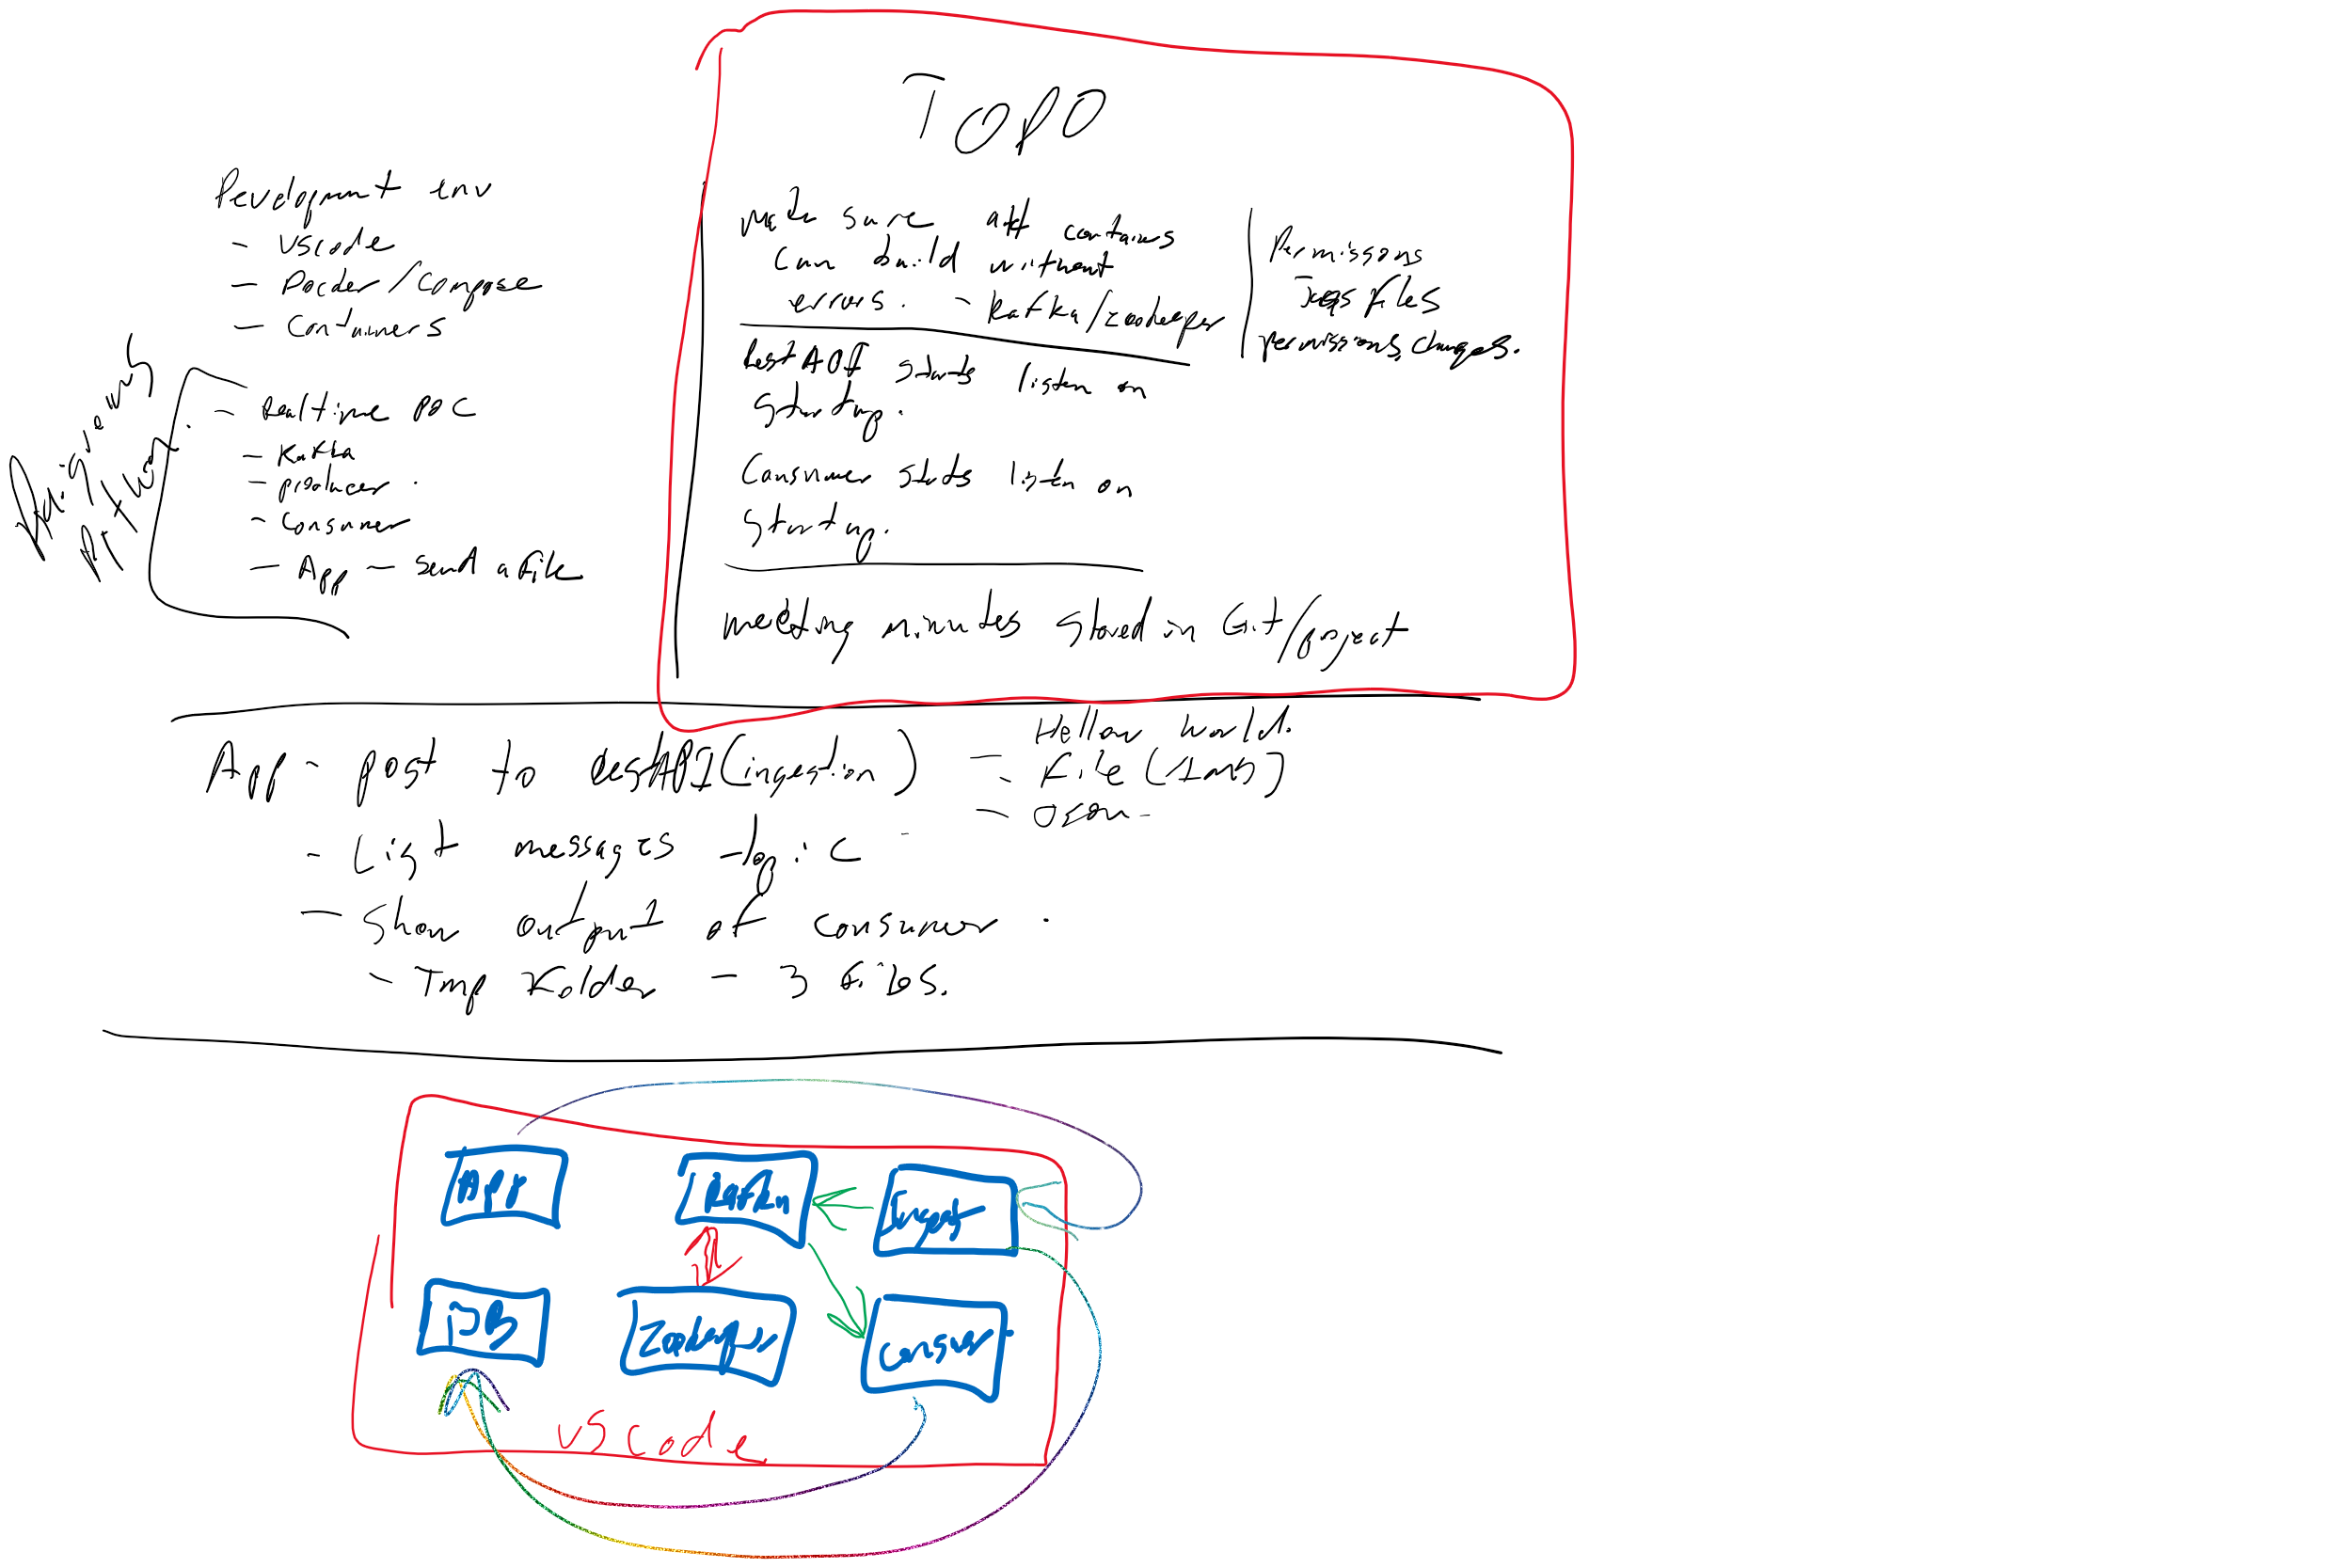 TODO
Development env
- VScode
- Docker/Compose
- Containers
- Realtime POC
- Kafka
- producer.
- Consumer
- App - send a file
Python.
make sure all contains
can build without
errors. - Kafka/zookeeper
Permissons
files
permissions changes.
Rest API starts listen on
Startup.
Consumer starts listen on
Startup.
meeting minutes stored in Git/project
App - post to RestAPI (ingestion)
- Hellow World.
- File (1MB)
- JSON -
- List messages topic
- Show output of consumer.
- Tmp Folder - 3 files.
App
Kafka
Ingest
DB
Zookeeper
consumer
VScode